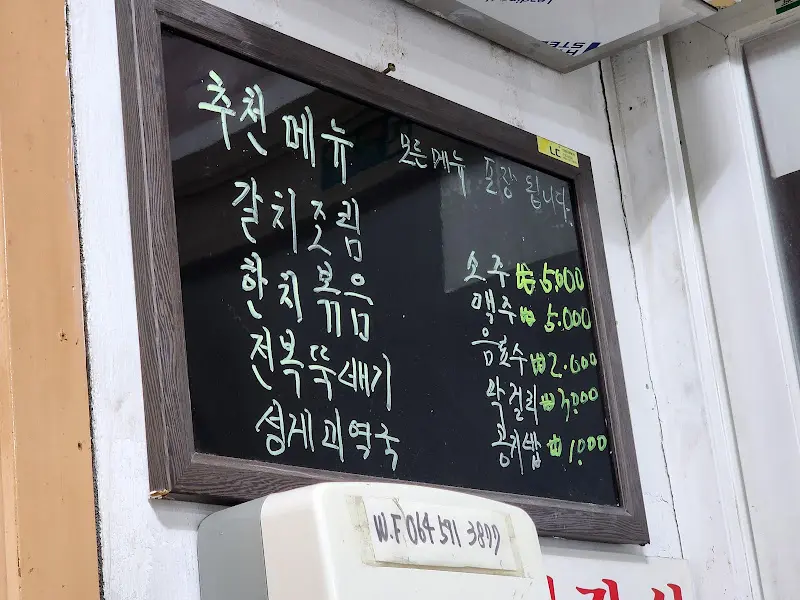 추천 메뉴
모든메뉴 포장 됩니다.
갈치조림
한치볶음
전복뚝배기
성게미역국
소주 ₩5.000
맥주 ₩5.000
음료수 ₩2.000
막걸리 ₩3.000
공기밥 ₩1.000
W.F 064 571 3877